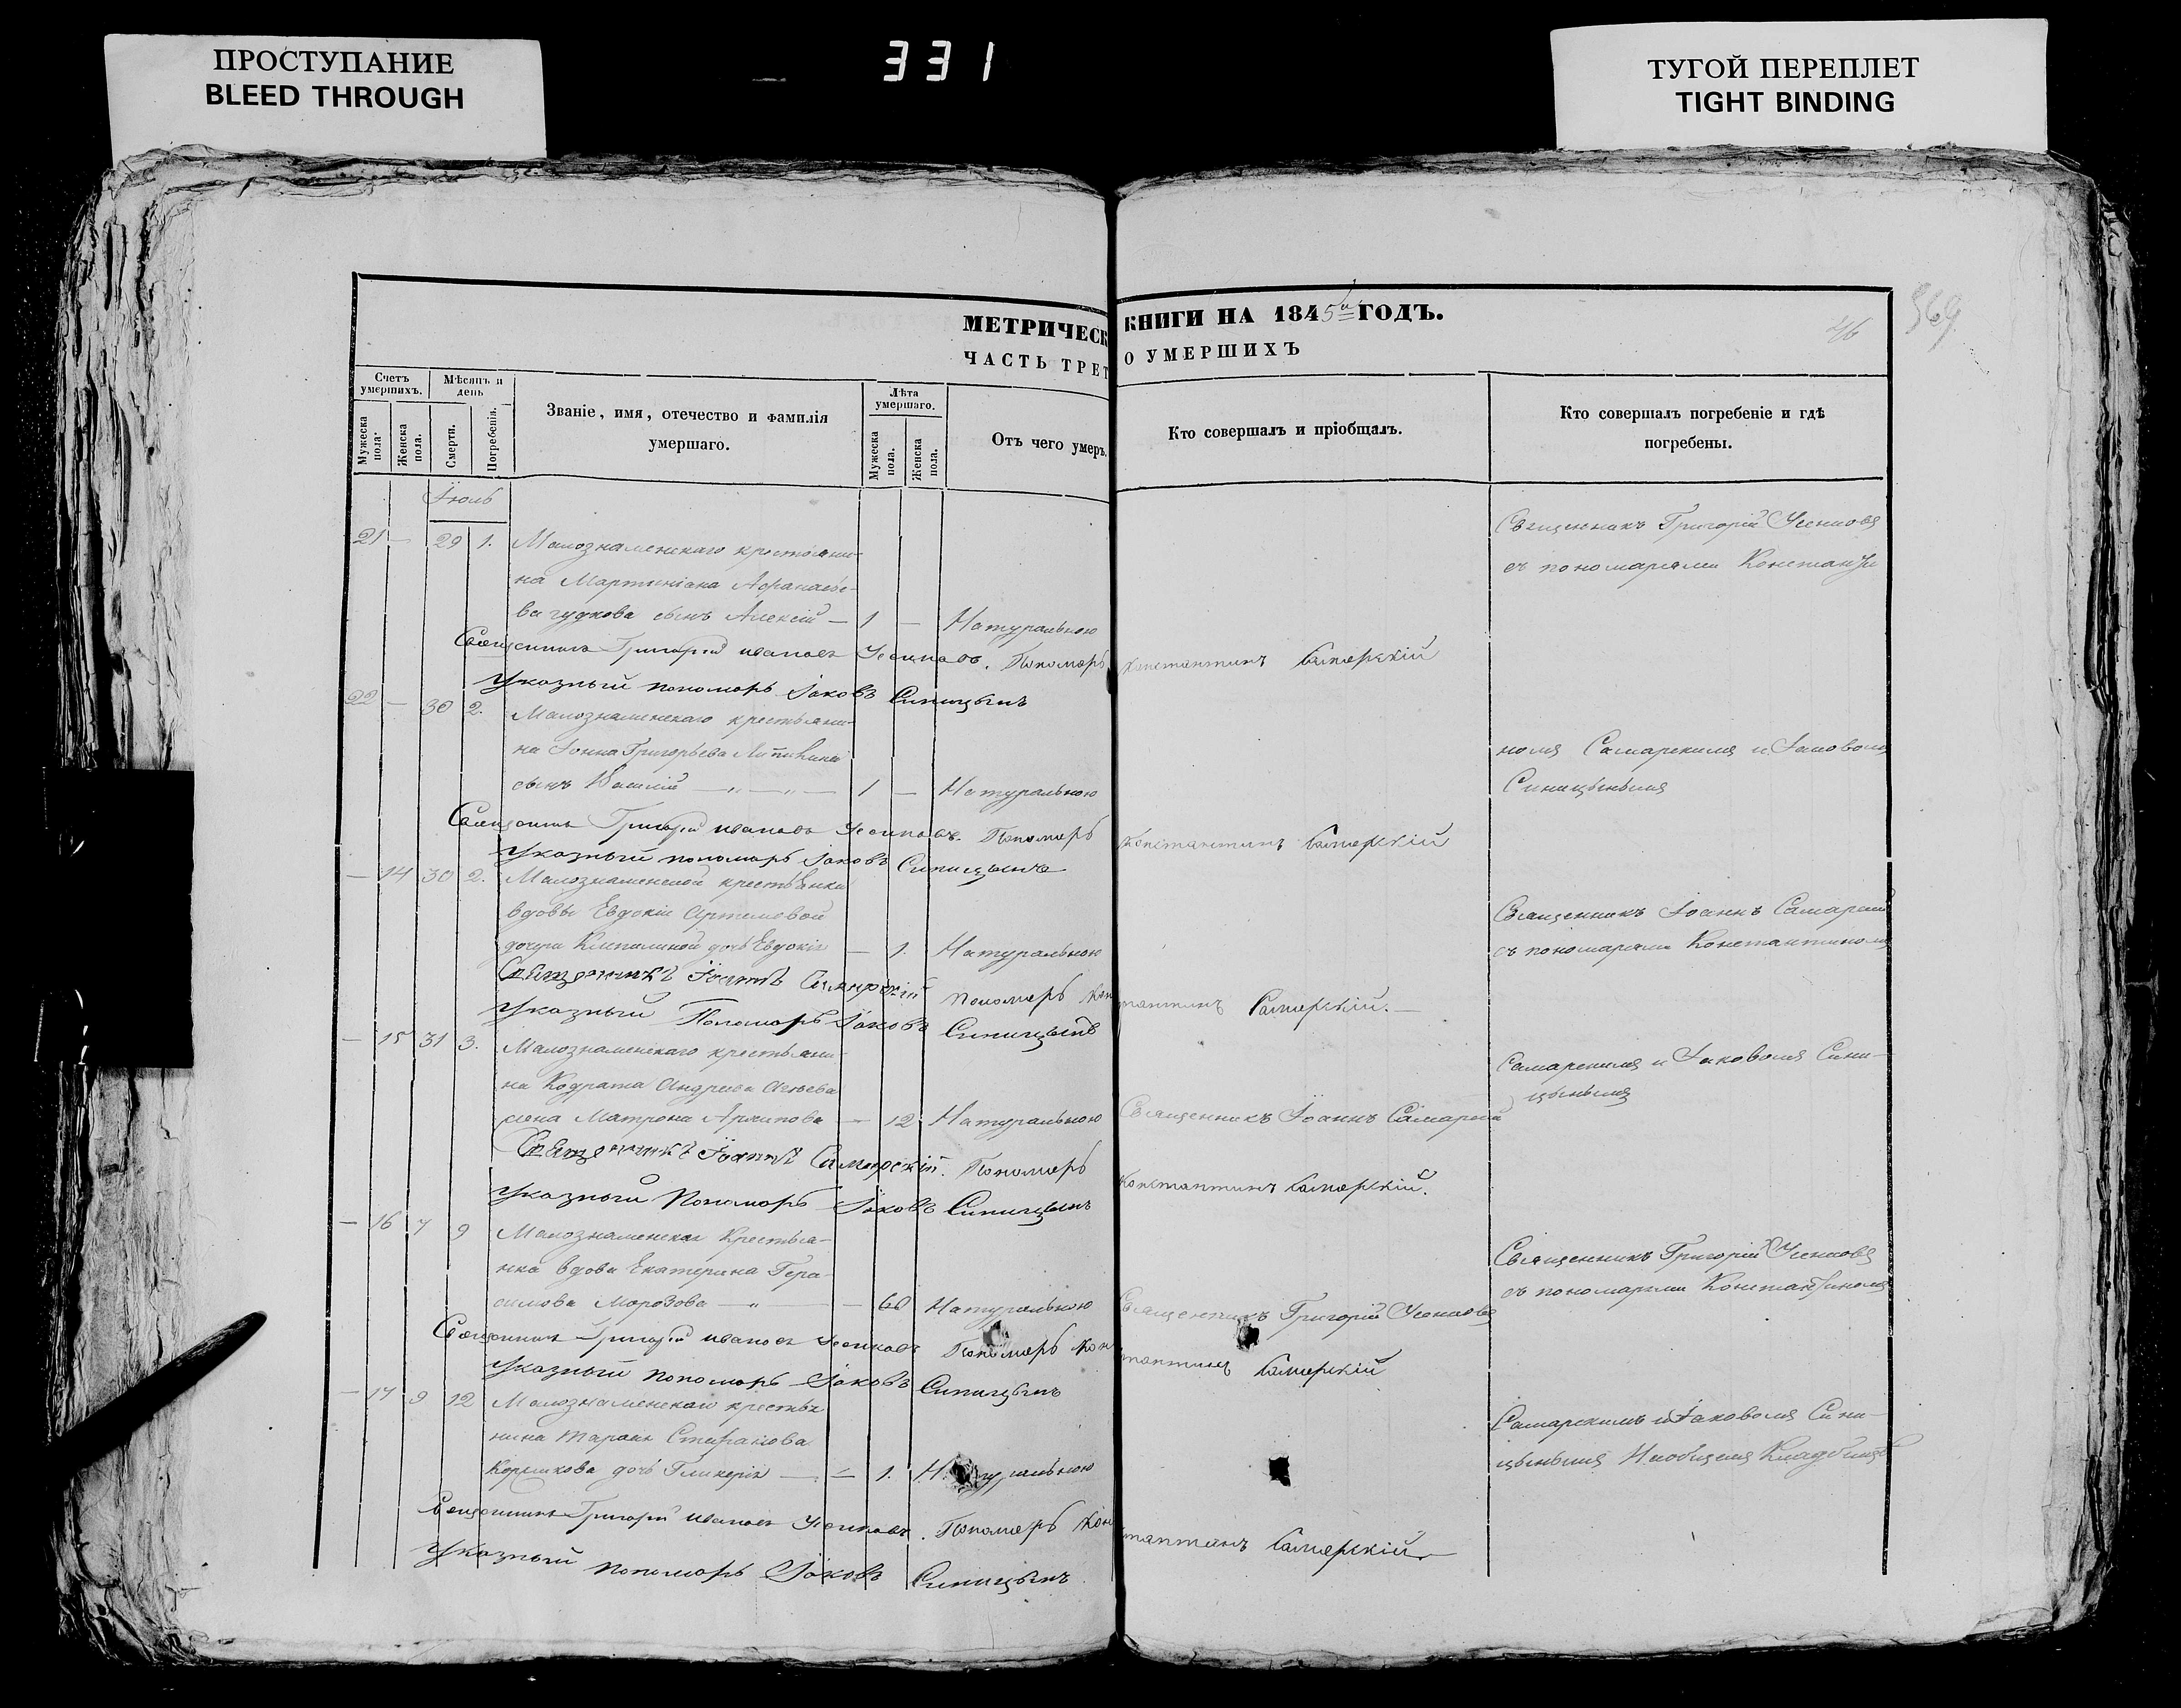 ПРОСТУПАНИЕ
BLEED THROUGH
331
ТУГОЙ ПЕРЕПЛЕТ
TIGHT BINDING
МЕТРИЧЕСК КНИГИ НА 1845й ГОДЪ.
46
569
ЧАСТЬ ТРЕТ О УМЕРШИХЪ
Счетъ умершихъ.
Мужеска пола.
Женска пола.
Мѣсяцъ и день
Смерти.
Погребенія.
Званіе, имя, отечество и фамилія
умершаго.
Лѣта умершаго.
Мужеска пола.
Женска пола.
Отъ чего умеръ.
Кто совершалъ и пріобщалъ.
Кто совершалъ погребеніе и гдѣ
погребены.
Іюль
21 — 29 1. Малознаменскаго крестьяни-
на Мартиніана Афанасье-
ва гудкова сынъ Алексій — 1 — Натуральною
Священникъ Григорій Усенковъ
съ пономарями Константи
Священникъ Григорій ивановъ Усенковъ. Пономарь Константинъ Самарскій
Указный пономарь Іаковъ Синицынъ
22 — 30 2. Малознаменскаго крестьяни-
на Іоанна Григорьева
сынъ Василій — 1 — Натуральною
номъ Самарскимъ и Іаковомъ
Синицынымъ
Священникъ Григорій ивановъ Усенковъ. Пономарь Константинъ Самарскій
Указный пономарь Іаковъ Синицынъ
— 14 30 2. Малознаменской крестьянки
вдовы Евдокіи Артемовой
дочери дочь Евдокія — 1. Натуральною
Священникъ Іоаннъ Самарскій
съ пономарями Константиномъ
Священникъ Іоаннъ Самарскій Пономарь Константинъ Самарскій.
Указный Пономарь Іаковъ Синицынъ
— 15 31 3. Малознаменскаго крестьяни-
на Кодрата Андреева
жена Матрона Архипова — 12 Натуральною Священникъ Іоаннъ Самарскій
Самарскимъ и Іаковомъ Сини-
цынымъ
Священникъ Іоаннъ Самарскій. Пономарь Константинъ Самарскій.
Указный Пономарь Іаковъ Синицынъ
— 16 7 9 Малознаменская Крестья-
нка вдова Екатерина Гера-
симова Морозова — Натуральною Священникъ Григорій Усенковъ
Священникъ Григорій Усенковъ
съ пономарями Константиномъ
Священникъ Григорій ивановъ Усенковъ Пономарь Константинъ Самарскій
Указный пономарь Іаковъ Синицынъ
— 17 9 12 Малознаменскаго крестья
нина Тараса Стефанова
дочь Гликерія — 1. Натуральною
Самарскимъ и Іаковомъ Сини-
цынымъ Наобщемъ Кладбищѣ
Священникъ Григорій ивановъ Усенковъ. Пономарь Константинъ Самарскій
Указный пономарь Іаковъ Синицынъ